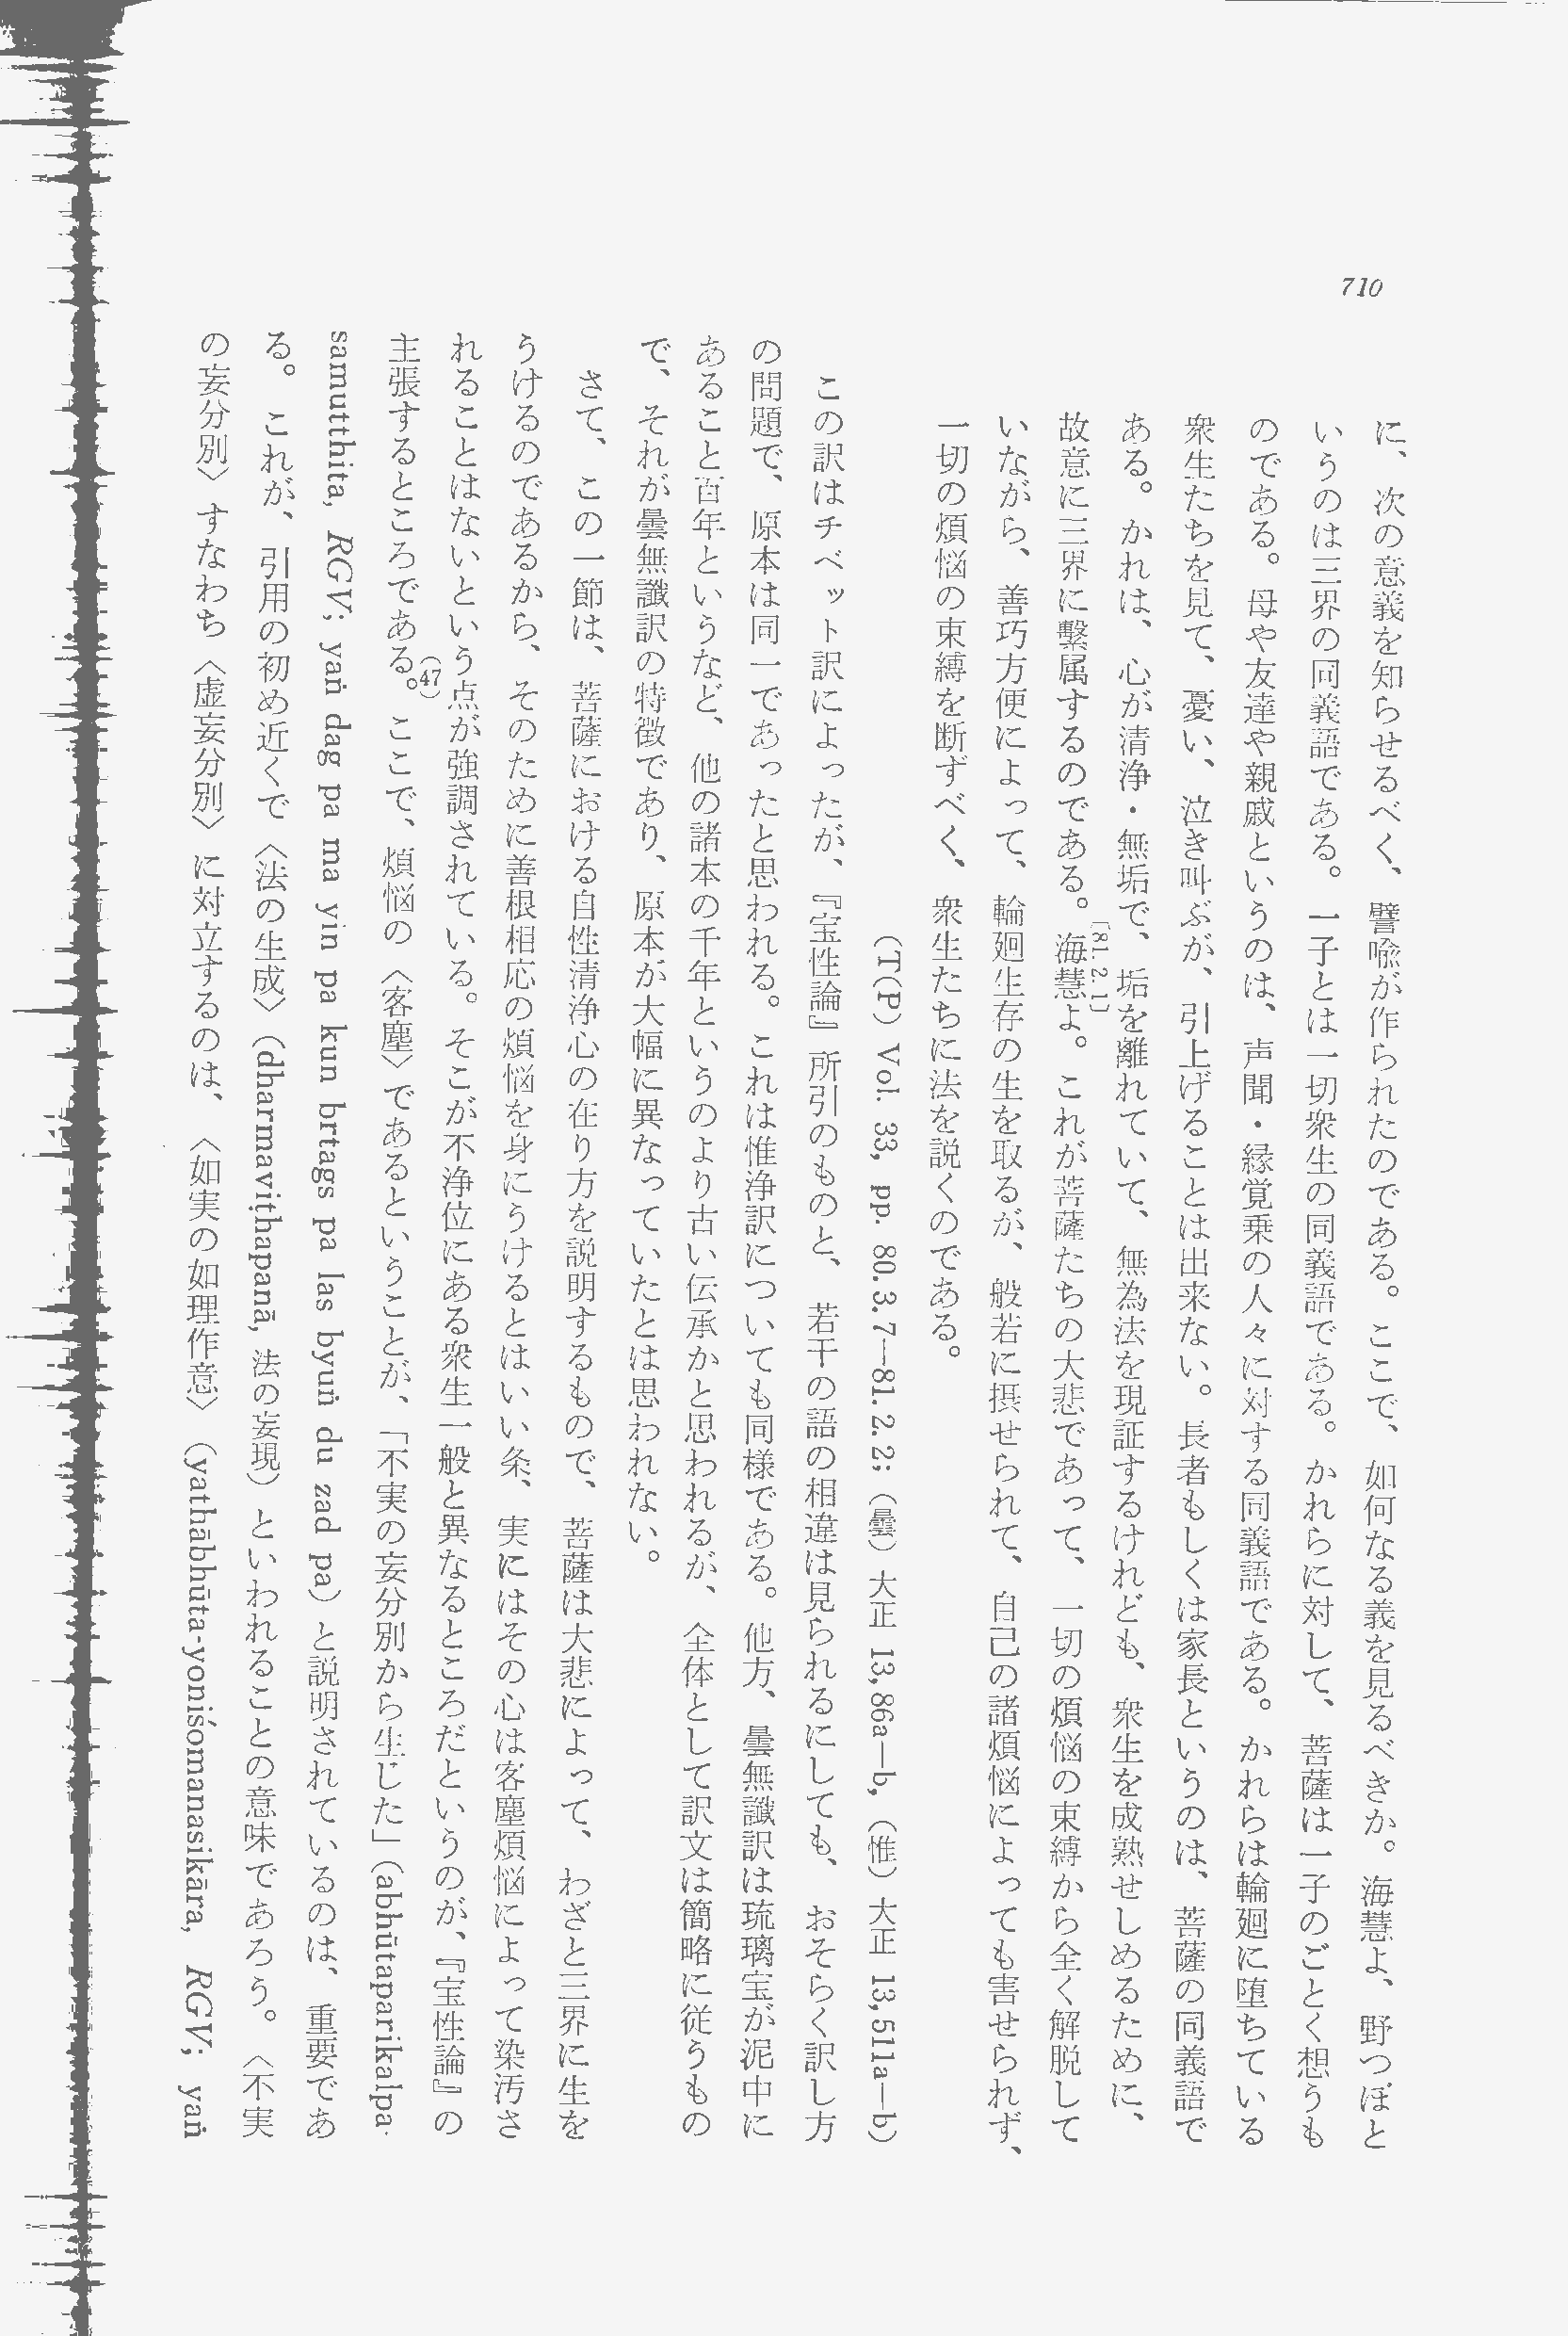 710
に、次の意義を知らせるべく、譬喩が作られたのである。ここで、如何なる義を見るべきか。海慧よ、野つぼと
いうのは三界の同義語である。一子とは一切衆生の同義語である。かれらに対して、菩薩は一子のごとく想うも
のである。母や友達や親戚というのは、声聞・縁覚乗の人々に対する同義語である。かれらは輪廻に堕ちている
衆生たちを見て、憂い、泣き叫ぶが、引上げることは出来ない。長者もしくは家長というのは、菩薩の同義語で
ある。かれは、心が清浄・無垢で、垢を離れていて、無為法を現証するけれども、衆生を成熟せしめるために、
故意に三界に繫属するのである。[81. 2. 1]海慧よ。これが菩薩たちの大悲であって、一切の煩悩の束縛から全く解脱して
いながら、善巧方便によって、輪廻生存の生を取るが、般若に摂せられて、自己の諸煩悩によっても害せられず、
一切の煩悩の束縛を断ずべく、衆生たちに法を説くのである。
(T(P) Vol. 33, pp. 80. 3. 7—81. 2. 2; (曇) 大正 13, 86a—b, (惟) 大正 13, 511a—b)
この訳はチベット訳によったが、『宝性論』所引のものと、若干の語の相違は見られるにしても、おそらく訳し方
の問題で、原本は同一であったと思われる。これは惟浄訳についても同様である。他方、曇無讖訳は琉璃宝が泥中に
あること百年というなど、他の諸本の千年というのより古い伝承かと思われるが、全体として訳文は簡略に従うもの
で、それが曇無讖訳の特徴であり、原本が大幅に異なっていたとは思われない。
さて、この一節は、菩薩における自性清浄心の在り方を説明するもので、菩薩は大悲によって、わざと三界に生を
うけるのであるから、そのために善根相応の煩悩を身にうけるとはいい条、実にはその心は客塵煩悩によって染汚さ
れることはないという点が強調されている。そこが不浄位にある衆生一般と異なるところだというのが、『宝性論』の
主張するところである。(47)ここで、煩悩の〈客塵〉であるということが、「不実の妄分別から生じた」(abhūtaparikalpa-
samutthita, RGV; yaṅ dag pa ma yin pa kun brtags pa las byuṅ du zad pa) と説明されているのは、重要であ
る。これが、引用の初め近くで〈法の生成〉(dharmaviṭhapanā, 法の妄現) といわれることの意味であろう。〈不実
の妄分別〉すなわち〈虚妄分別〉に対立するのは、〈如実の如理作意〉(yathābhūta-yoniśomanasikāra, RGV; yaṅ